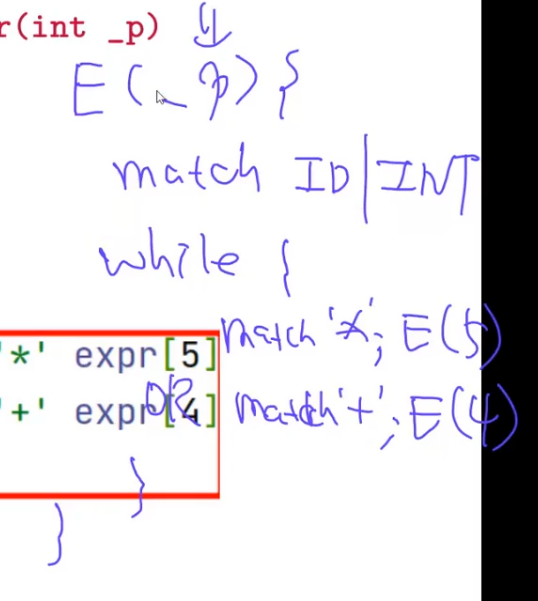 r(int _p)
E(_p) {
match ID|INT
while {
'*' expr[5] match '*'; E(5)
'+' expr[4] OR match '+'; E(4)
}
}